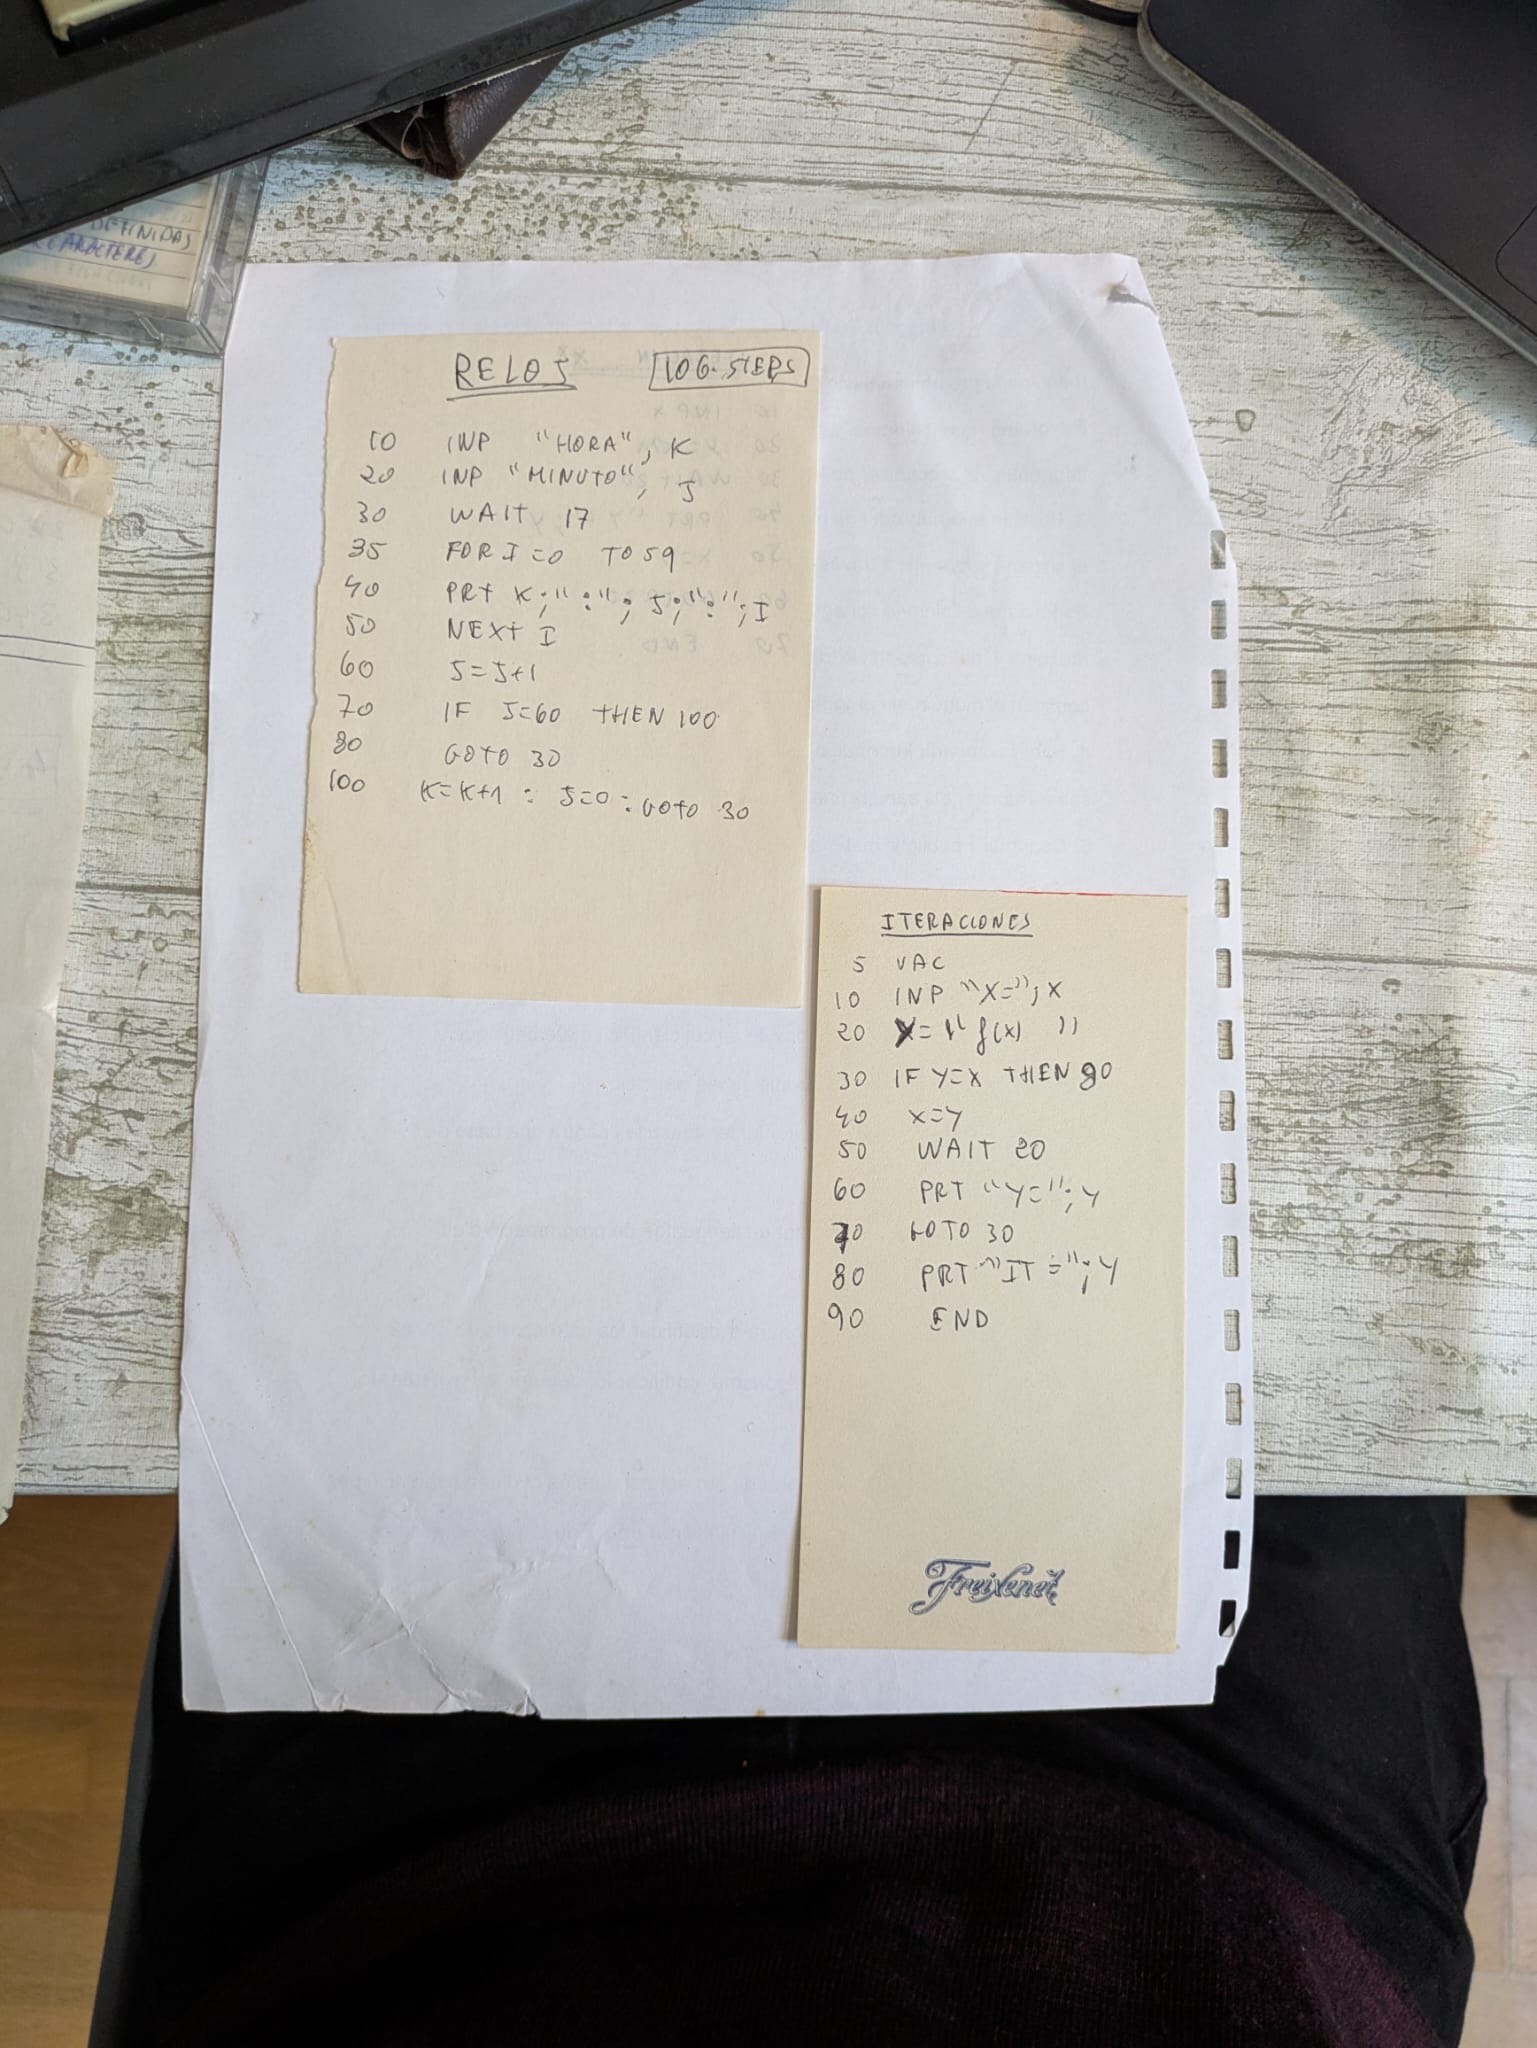 DEFINIDAS
CARACTERES
RELOJ 106 STEPS
10 INP "HORA", K
20 INP "MINUTO", J
30 WAIT 17
35 FOR I=0 TO 59
40 PRT K;":";J;":";I
50 NEXT I
60 J=J+1
70 IF J=60 THEN 100
80 GOTO 30
100 K=K+1 : J=0 : GOTO 30
ITERACIONES
5 VAC
10 INP "X="; X
20 Y= " f(x) "
30 IF Y=X THEN 90
40 X=Y
50 WAIT 20
60 PRT "Y="; Y
70 GOTO 30
80 PRT "IT ="; Y
90 END
Freixenet